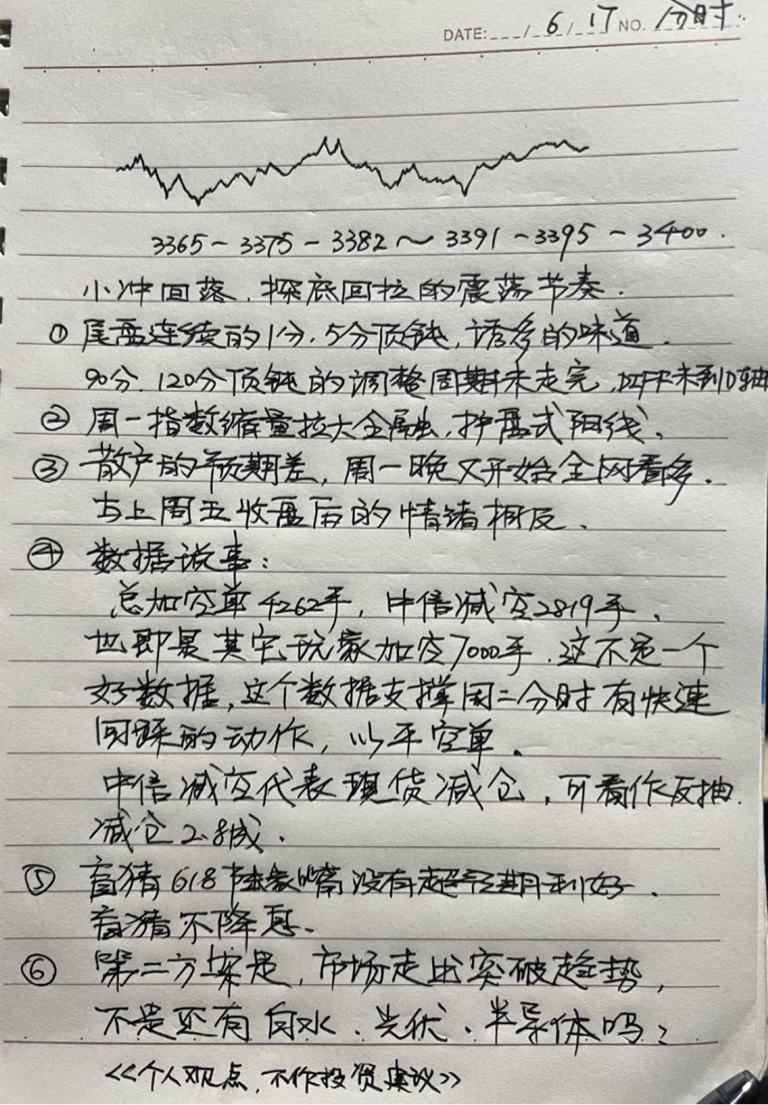 DATE:___/_6_/_17 NO. 分时
3365－3375－3382～3391－3395－3400.
小冲回落、探底回拉的震荡节奏.
① 尾盘连续的1分、5分顶钝,诱多的味道.
90分、120分顶钝的调整周期未走完,DIF未到0轴
② 周一指数缩量拉大金融,护盘式阳线、
③ 散户的预期差,周一晚又开始全网看多.
与上周五收盘后的情绪相反、
④ 数据说事:
总加空单4262手,中信减空2819手、
也即是其它玩家加空7000手.这不是一个
好数据,这个数据支撑周二分时有快速
回踩的动作,以平空单.
中信减空代表现货减仓,可看作反抽
减仓2.8成.
⑤ 盲猜618陆家嘴没有超预期利好.
盲猜不降息.
⑥ 第二方案是,市场走出突破趋势,
不是还有白水、光伏、半导体吗?
<<个人观点,不作投资建议>>